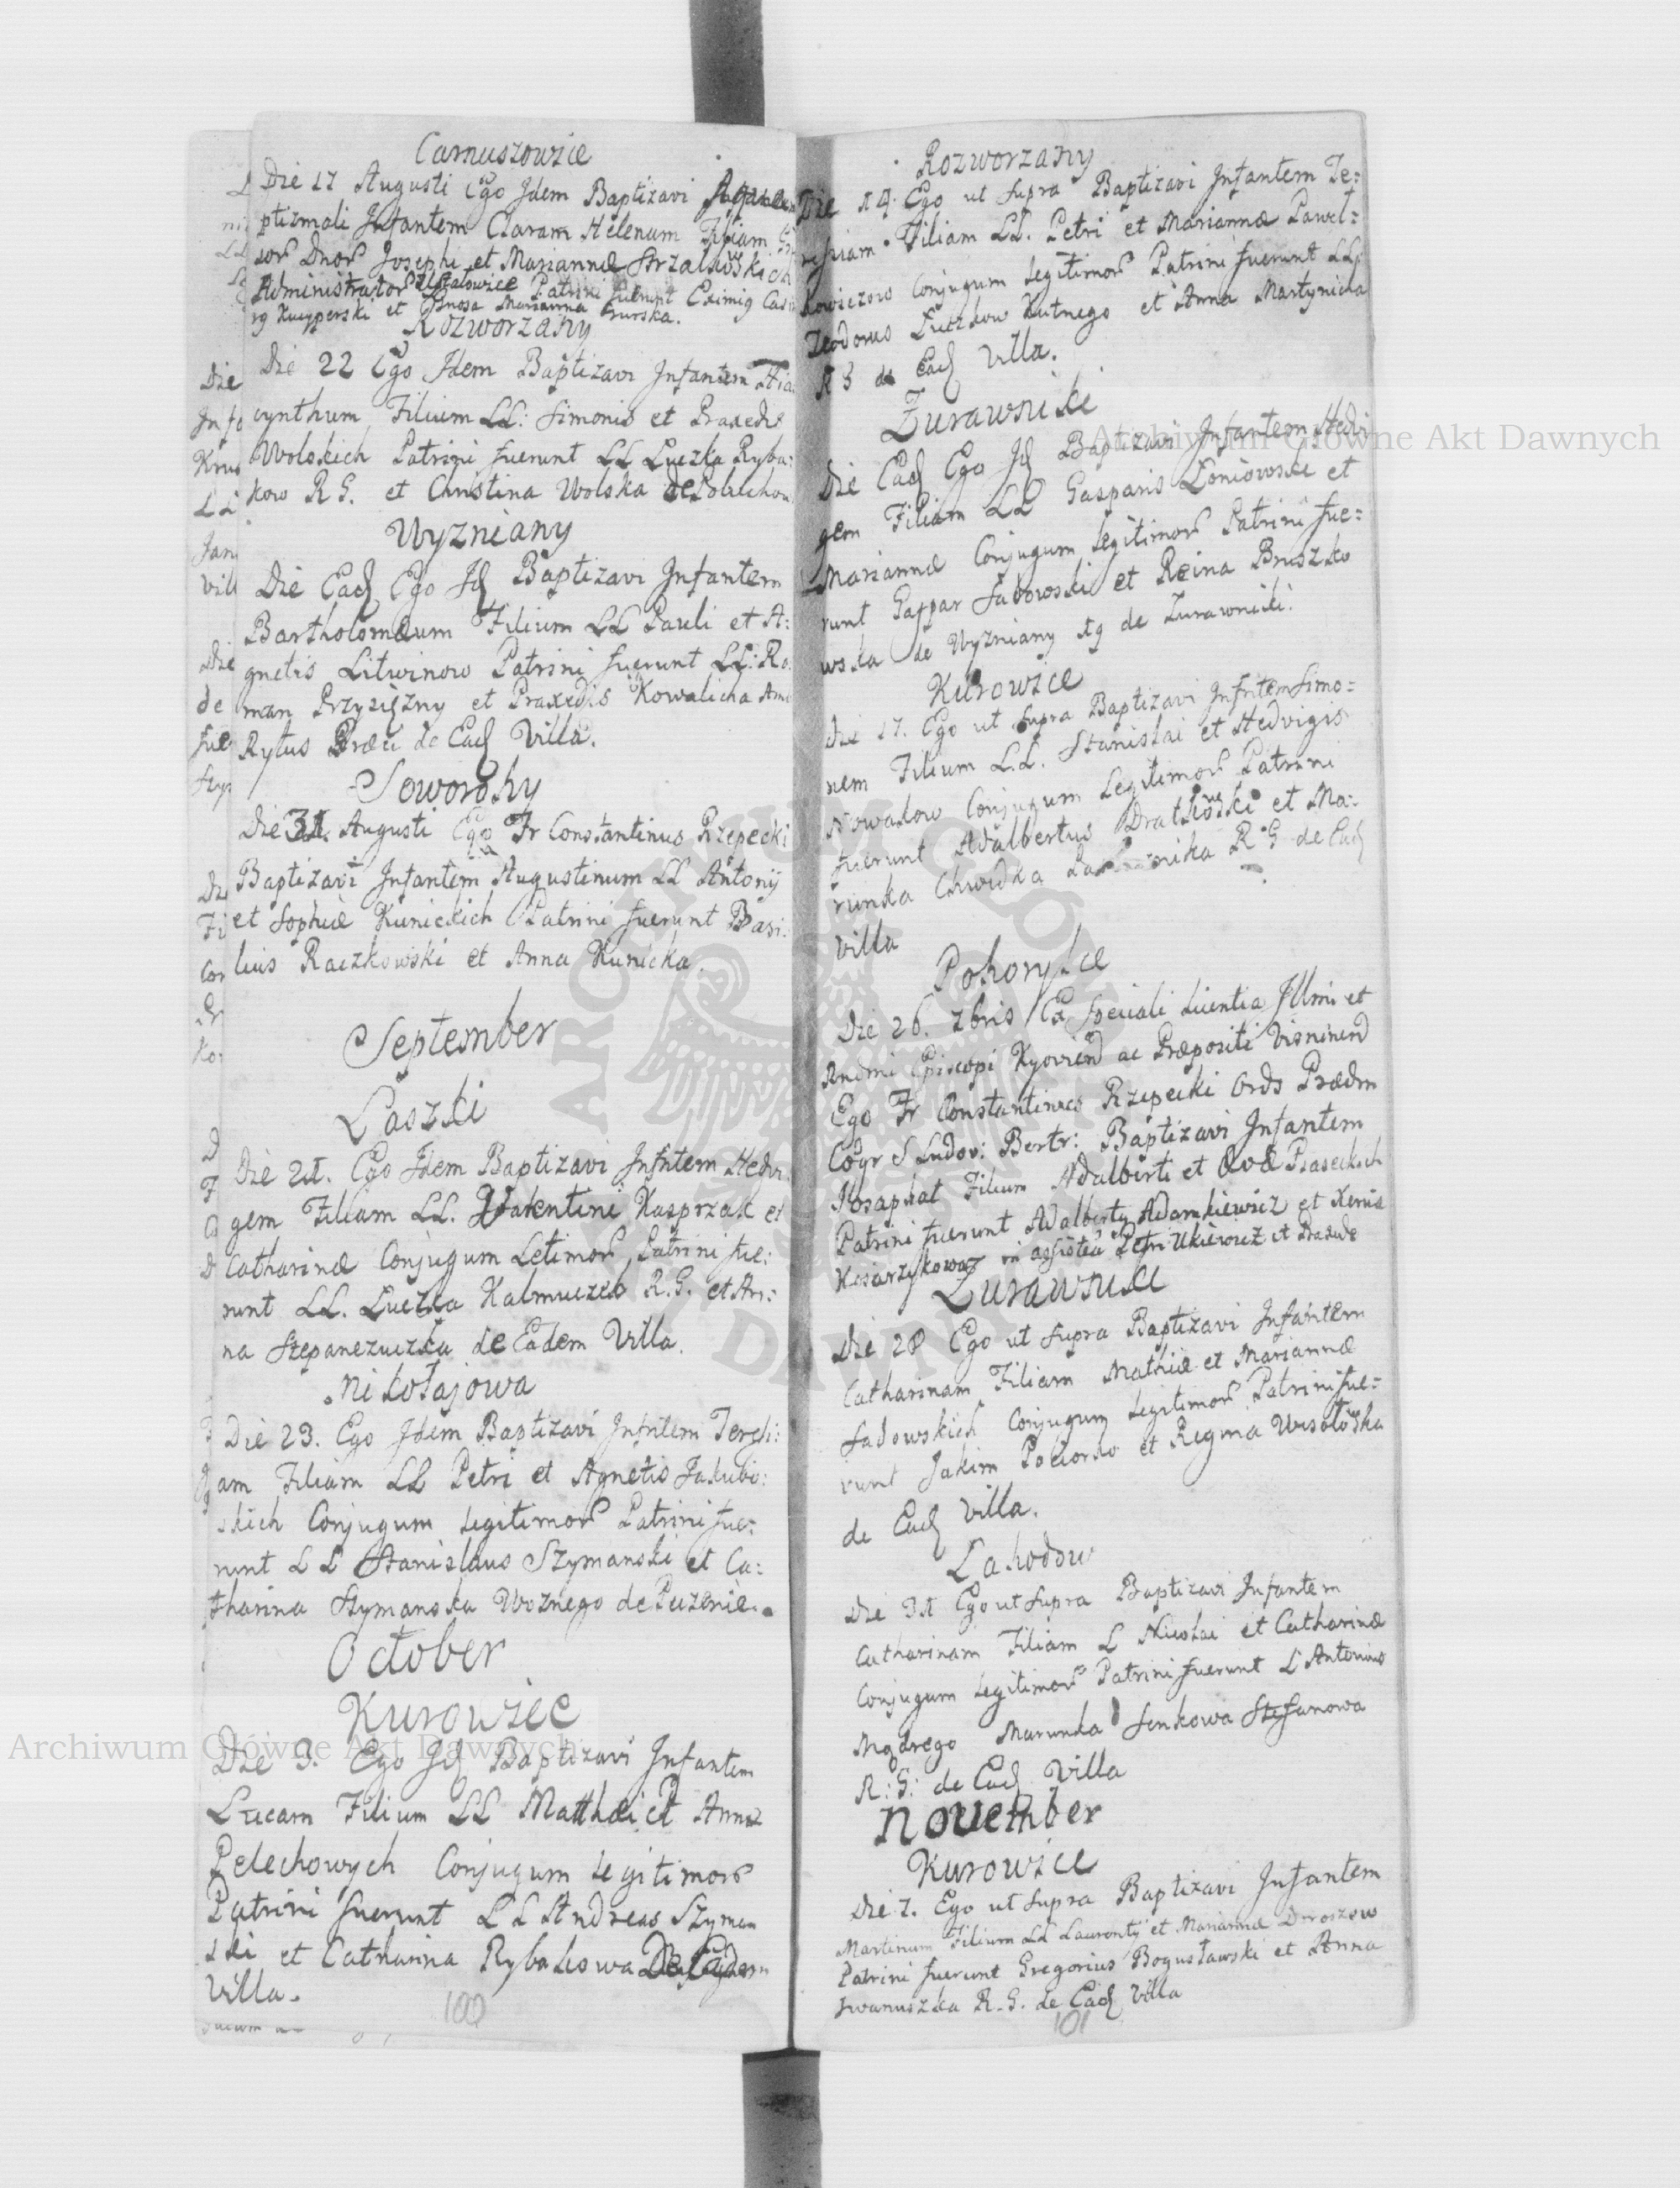 Camuszowice
Die 17 Augusti Ego Jdem Baptizavi
ptizmali Jnfantem Claram Helenam Filiam
Dnor Josephi et Mariannæ Strzałkoskich
Administrator Patrini fuerunt Eximig
et Gnosa Marianna Gurska.
Rozworzany
Die 22 Ego Jdem Baptizavi Jnfantem Hia
cynthum Filium LL: Simonis et Praxedis
Wolskich Patrini fuerunt LL Luczka Ryba:
kow R G. et Christina Wolska de
Wyzniany
Die Ead Ego Jd Baptizavi Jnfantem
Bartholomæum Filium LL Pauli et A:
gnetis Litwinow Patrini fuerunt LL: Ro:
man Przysiężny et Praxedis Kowalicha Amo
Rytus Græci de Ead Villa.
Soworohy
Die 31. Augusti Ego Fr Constantinus Rzepecki
Baptizavi Jnfantem Augustinum LL Antonij
et Sophiæ Kunickich Patrini fuerunt Basi:
lius Raczkowski et Anna Kunicka.
September
Laszki
Die 21. Ego Jdem Baptizavi Jnfntem Hedvi
gem Filiam LL. Valentini Kasprzak et
Catharinæ Conjugum Letimor Patrini fue:
runt LL. Luczka Kalmuczko R. G. et An:
na Stepanczuczka de Eadem Villa.
Nikołajowa
Die 23. Ego Jdem Baptizavi Jnfntem Teresi:
am Filiam LL Petri et Agnetis Jakubo:
skich Conjugum Legitimor Patrini fue:
runt LL Stanislaus Szymanski et Ca:
tharina Szymanska Woznego de Puzenie.
October
Kurowiec
Die 3. Ego Jd Baptizavi Jnfantem
Lucam Filium LL Matthæi et Annæ
Pelechowych Conjugum Legitimor
Patrini fuerunt LL Andreas Szyman
ski et Catharina Rybakowa De Eadem
Villa.
100
Rozworzany
Die 14. Ego ut supra Baptizavi Jnfantem Te:
resiam Filiam LL. Petri et Mariannæ Pawel:
kowiczow Conjugum Legitimor Patrini fuerunt LL
Teodorus Luczkow Kutnego et Anna Martynicha
R G de Ead Villa.
Zurawniki
Die Ead Ego Jd Baptizavi Jnfantem Hedvi
gem Filiam LL Gasparis Loniowski et
Mariannæ Conjugum Legitimor Patrini fue:
runt Gaspar Sadowski et Reina Bruszko
wska de Wyzniany Ag de Zurawniki.
Kurowice
Die 17. Ego ut supra Baptizavi Jnfntem Simo:
nem Filium LL. Stanislai et Hedvigis
Nowakow Conjugum Legitimor Patrini
fuerunt Adalbertus et Ma:
runka Chwedka R G de Ead
Villa
Pohorylce
Die 26. 8bris Ex speciali Licentia Jllmi et
Rndmi Episcopi Kyovien ac Præpositi Visninen
Ego Fr Constantinus Rzepecki Ords Prædm
S Ludov: Bertr: Baptizavi Jnfantem
Josaphat Filium Adalberti et Evæ Piaseckich
Patrini fuerunt Adalbertg Adamkiewicz et Xenia
Kosarzykowa in assistea Petri Ukiewicz et Praxede
Zurawniki
Die 28 Ego ut supra Baptizavi Jnfantem
Catharinam Filiam Mathiæ et Mariannæ
Sadowskich Conjugum Legitimor Patrini fue:
runt Jakim Pociorko et Regina Wisołoska
de Ead Villa.
Lahodow
Die 31 Ego ut supra Baptizavi Jnfantem
Catharinam Filiam L Nicolai et Catharinæ
Conjugum Legitimor Patrini fuerunt L Antonius
Mądrego Marunka Senkowa Stefanowa
R: G: de Ead Villa
November
Kurowice
Die 7. Ego ut supra Baptizavi Jnfantem
Martinum Filium LL Laurentij et Mariannæ Doroszow
Patrini fuerunt Gregorius Bogusławski et Anna
Jwanuszka R. G. de Ead Villa
101
Archiwum Główne Akt Dawnych
Archiwum Główne Akt Dawnych
ARCHIWUM GŁÓWNE AKT DAWNYCH